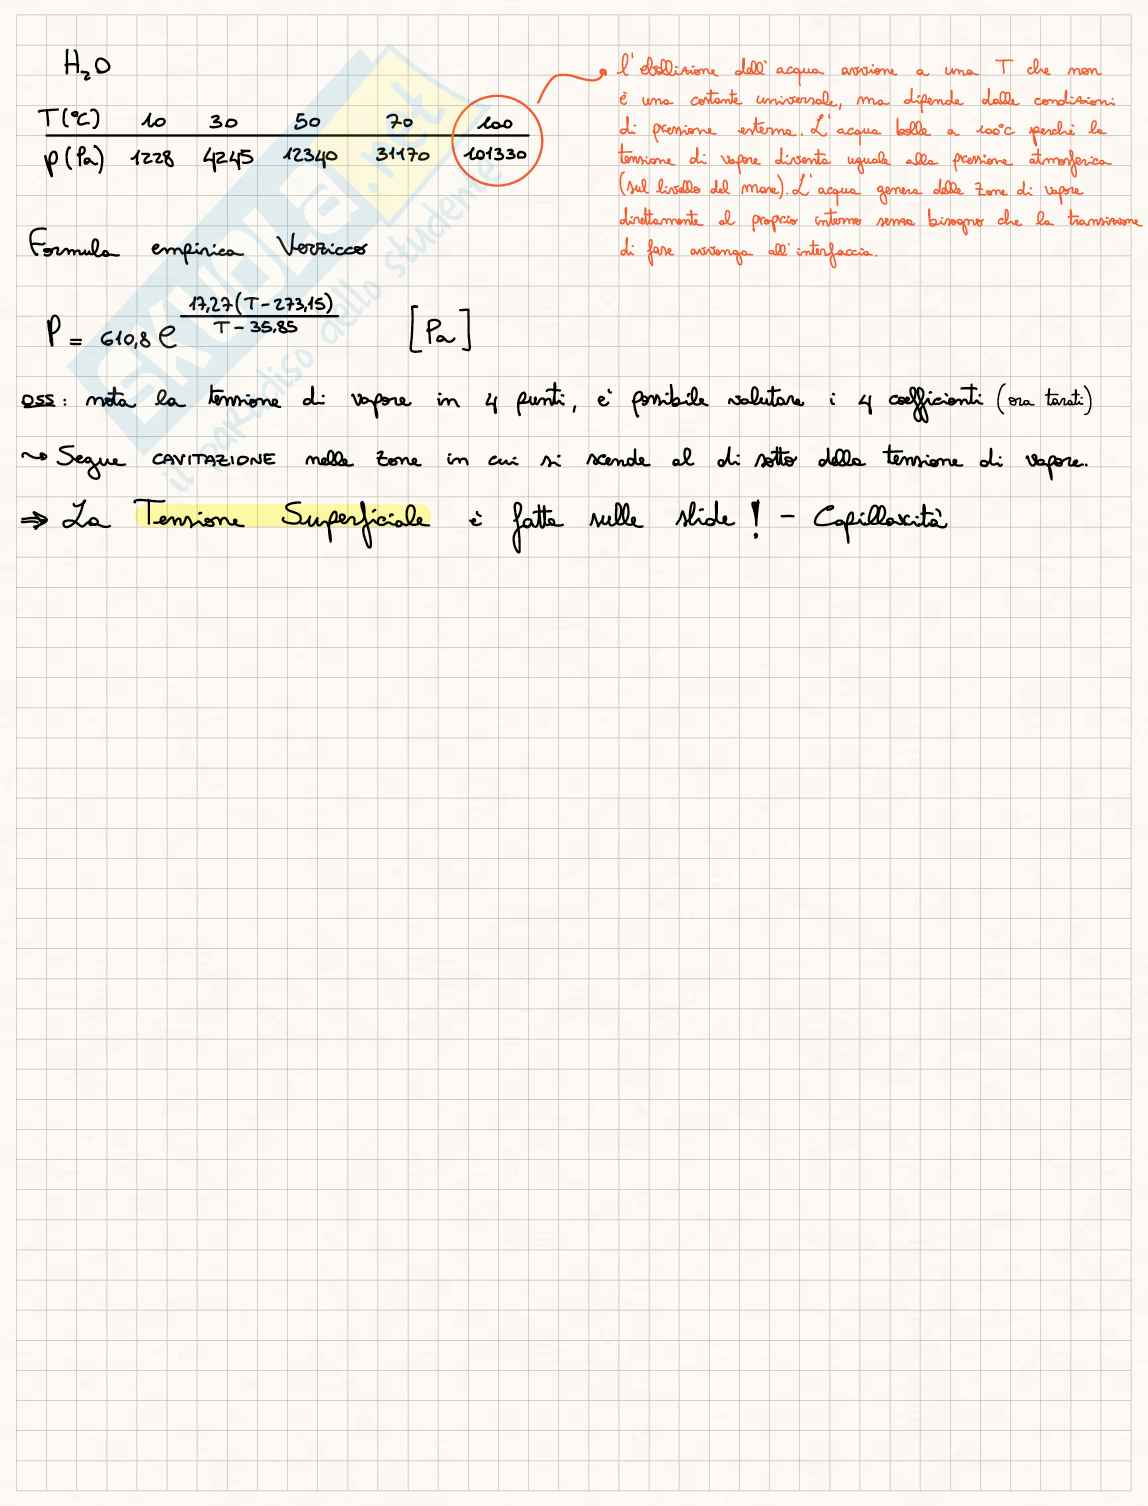 H₂O
T(°C) 10 30 50 70 100
P(Pa) 1228 4245 12340 31170 101330
l'ebollizione dell'acqua avviene a una T che non
è una costante universale, ma dipende dalle condizioni
di pressione esterna. L'acqua bolle a 100°C perché la
tensione di vapore diventa uguale alla pressione atmosferica
(sul livello del mare). L'acqua genera delle zone di vapore
direttamente al proprio interno senza bisogno che la transizione
di fase avvenga all'interfaccia.
Formula empirica Verzicco
P = 610,8 e^(17,27(T-273,15) / (T-35,85)) [Pa]
OSS: nota la tensione di vapore in 4 punti, e' possibile valutare i 4 coefficienti (ora tarati)
~> Segue CAVITAZIONE nelle zone in cui si scende al di sotto della tensione di vapore.
⇒ La Tensione Superficiale è fatta sulle slide! - Capillarità
SKUOLA.net
il paradiso dello studente